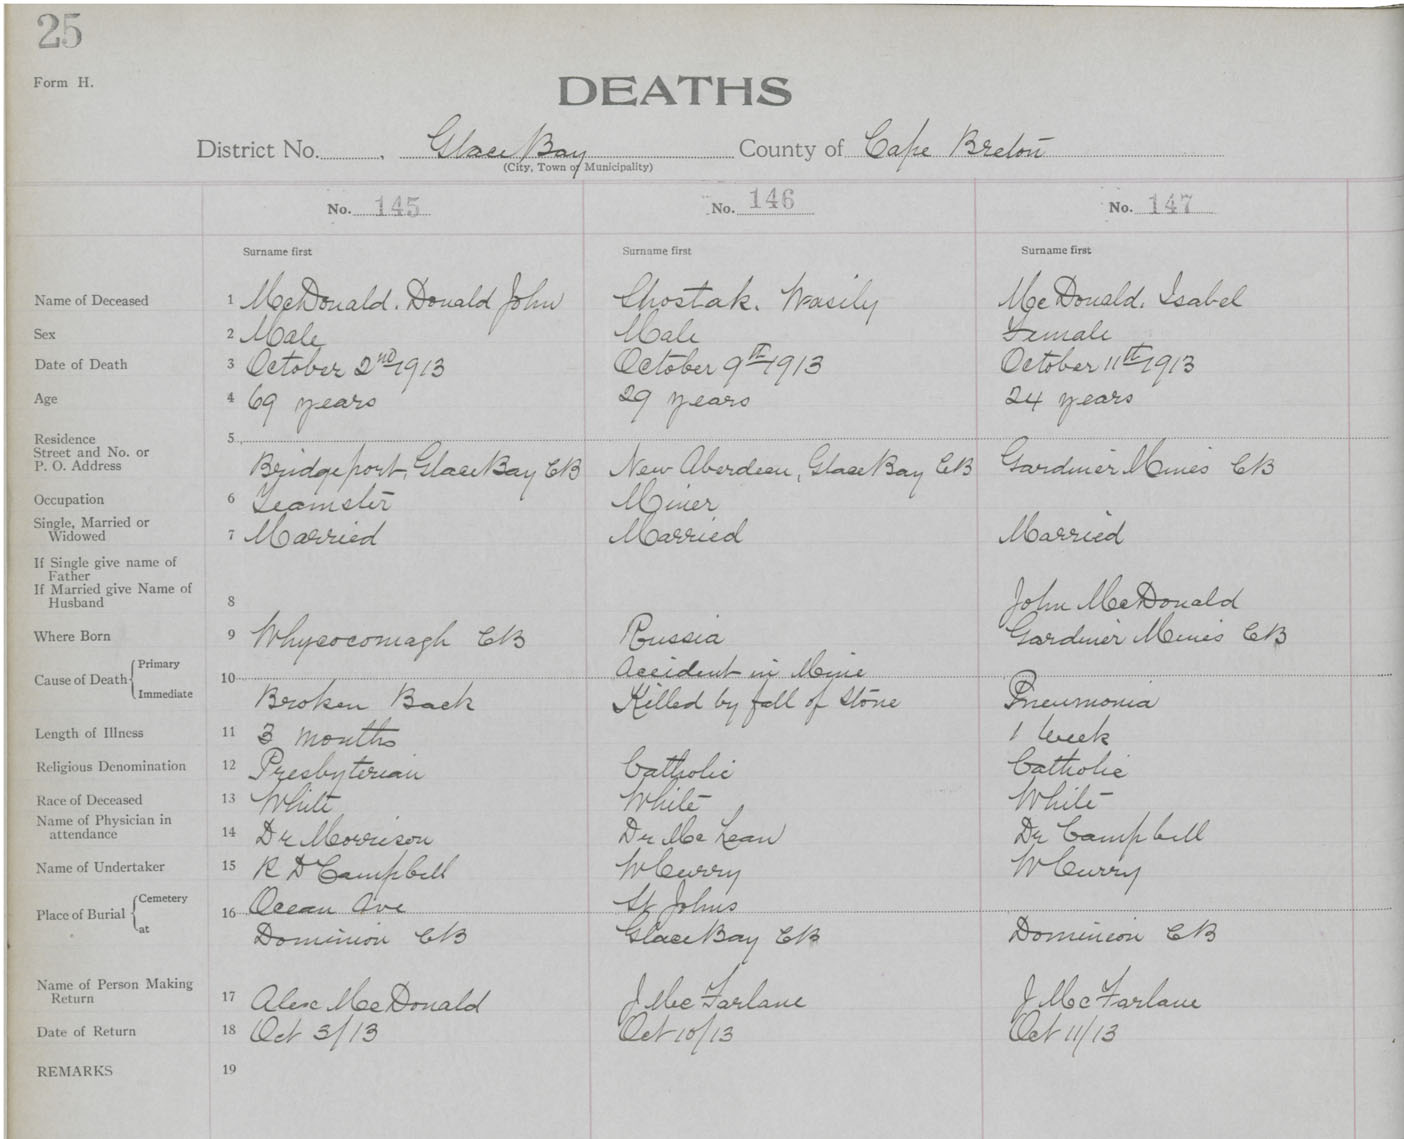 25
Form H.
DEATHS
District No. , Glace Bay County of Cape Breton
(City, Town or Municipality)
No. 145 No. 146 No. 147
Surname first Surname first Surname first
Name of Deceased 1 McDonald. Donald John Shostak. Wasily McDonald. Isabel
Sex 2 Male Male Female
Date of Death 3 October 2nd 1913 October 9th 1913 October 11th 1913
Age 4 69 years 29 years 24 years
Residence 5
Street and No. or
P. O. Address Bridgeport, Glace Bay CB New Aberdeen, Glace Bay CB Gardiner Mines CB
Occupation 6 Teamster Miner
Single, Married or
Widowed 7 Married Married Married
If Single give name of
Father
If Married give Name of
Husband 8 John McDonald
Where Born 9 Whycocomagh CB Russia Gardiner Mines CB
Cause of Death Primary 10 Accident in Mine
Immediate Broken Back Killed by fall of Stone Pneumonia
Length of Illness 11 3 months 1 Week
Religious Denomination 12 Presbyterian Catholic Catholic
Race of Deceased 13 White White White
Name of Physician in
attendance 14 Dr Morrison Dr McLean Dr Campbell
Name of Undertaker 15 R D Campbell W Curry W Curry
Place of Burial Cemetery 16 Ocean Ave St Johns
at Dominion CB Glace Bay CB Dominion CB
Name of Person Making
Return 17 Alex McDonald J McFarlane J McFarlane
Date of Return 18 Oct 3/13 Oct 10/13 Oct 11/13
REMARKS 19